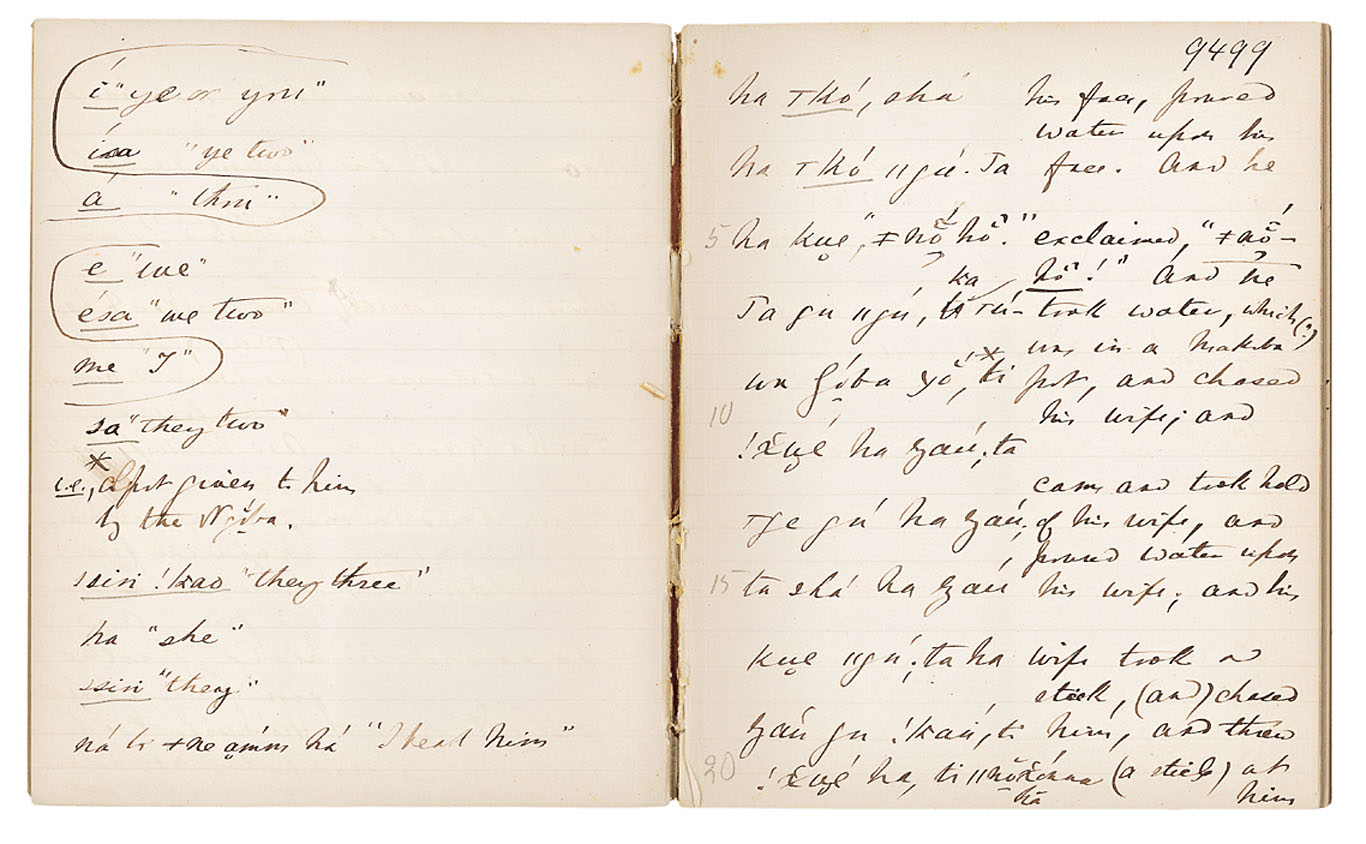 í "ye or you"
ísa "ye two"
á "thou"
e "we"
ésa "we two"
me "I"
sa "they two"
*
i.e., A pot given to him
by the Ngóba.
ssin !kao "they three"
ha "she"
ssin "they"
ná ti ǂne há "I beat him"
9499
ha Tkó, shá his face, poured
water upon his
ha Tkó ǁgú. Ta face. And he
5 ha kue, exclaimed,
ka hŏ!" And he
Ta gu ǁgú, took water, which (?)
was in a Makoba
ti pot, and chased
10 his wife; and
ha ta
came and took hold
gú ha of his wife, and
poured water upon
15 ta shá ha his wife; and his
kue ǁgú; ta ha wife took a
stick, (and) chased
gu !kaú, ti him, and threw
20 ha, ti (a stick) at
hā him